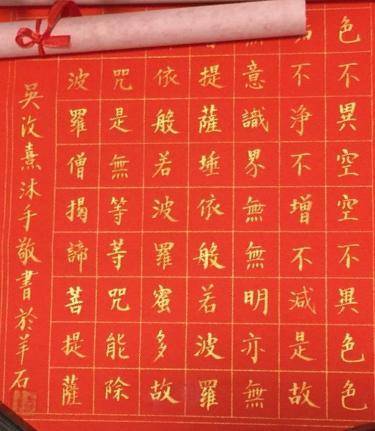 色不異空空不異色色
不淨不增不減是故
意識界無無明亦無
提薩埵依般若波羅
依般若波羅蜜多故
咒是無等等咒能除
波羅僧揭諦菩提薩
吳汝熹沐手敬書於羊石